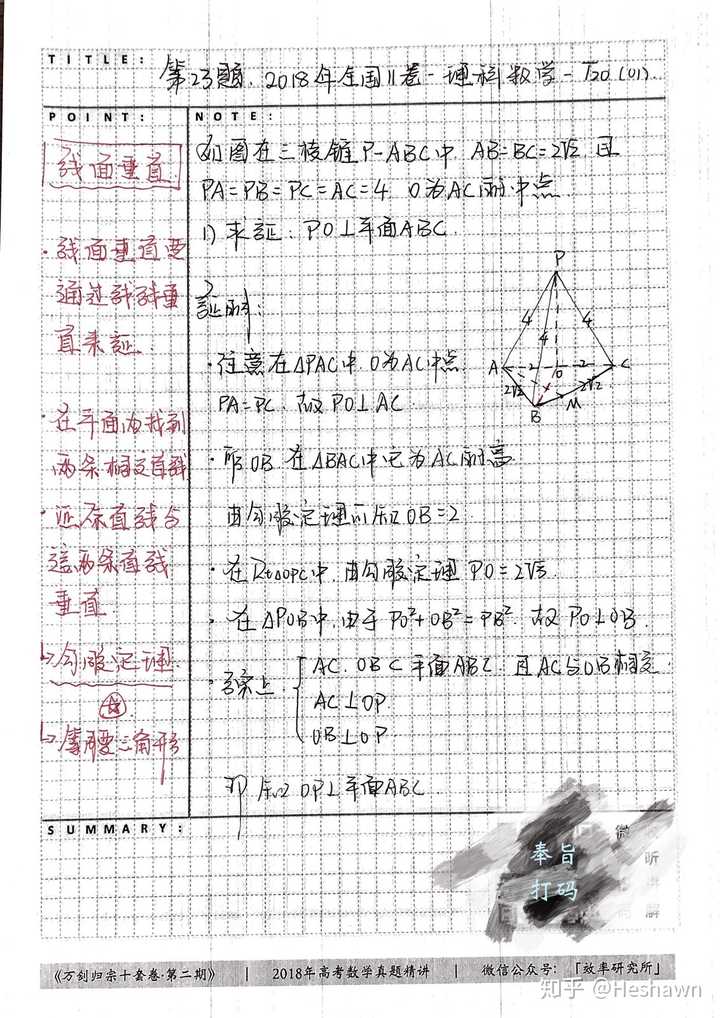 TITLE:
第23题. 2018年全国II卷-理科数学-T20(01).
POINT:
线面垂直
·线面垂直要
通过线线垂
直来证
·在平面内找到
两条相交直线
·证原直线与
这两条直线
垂直
↳勾股定理
☆
↳等腰三角形
NOTE:
如图在三棱锥P-ABC中, AB=BC=2√2, 且
PA=PB=PC=AC=4 O为AC的中点
1) 求证: PO⊥平面ABC
证明:
·注意在△PAC中, O为AC中点
PA=PC. 故PO⊥AC
·而OB, 在△BAC中它为AC的高
由勾股定理可知OB=2
·在Rt△OPC中, 由勾股定理 PO=2√3
·在△POB中, 由于PO²+OB²=PB². 故PO⊥OB.
·综上. AC, OB⊂平面ABC 且AC与OB相交
AC⊥OP
OB⊥OP
即知OP⊥平面ABC
P
4
4
4
A
2
O
2
C
2√2
2√2
B
M
SUMMARY:
奉旨
打码
微
听
解
《万剑归宗十套卷·第二期》 | 2018年高考数学真题精讲 | 微信公众号:「效率研究所」
知乎 @Heshawn